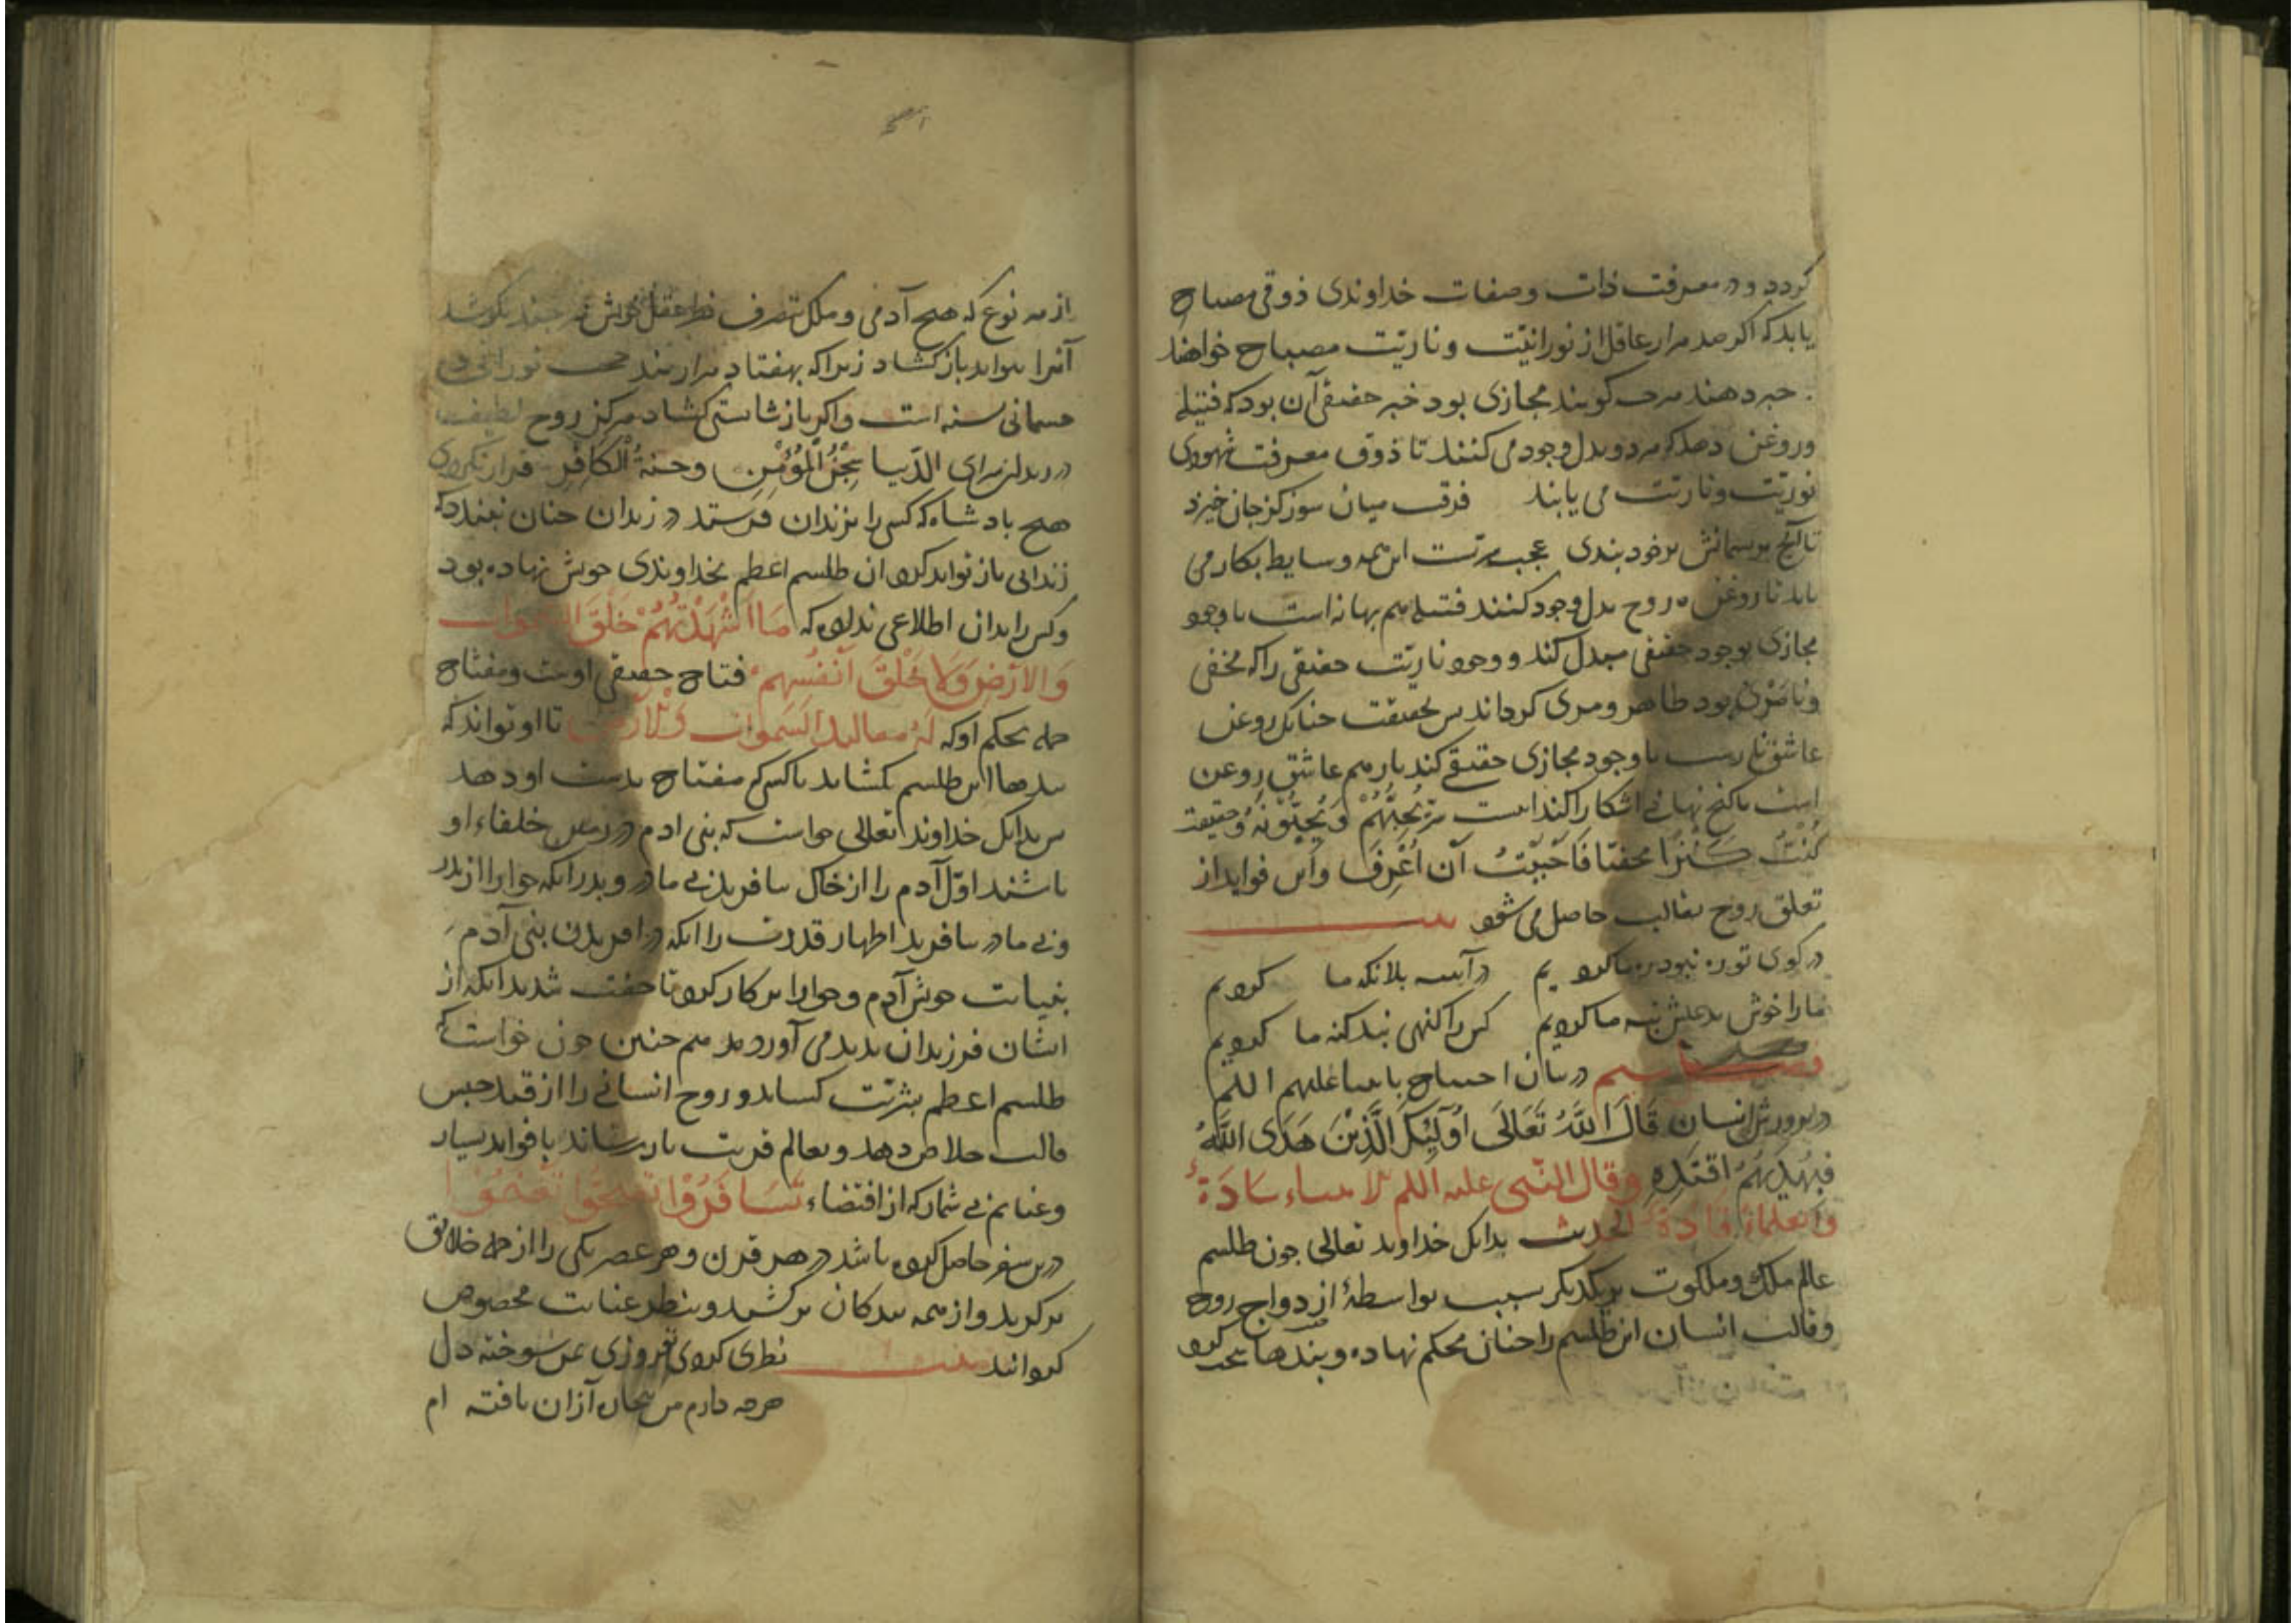 گردد و در معرفت ذات و صفات خداوندی ذوقی مصباح
یابد که اکر صد هزار عاقل از نورانیّت و ناریّت مصباح خواهند
خبر دهند هرچ کویند مجازی بود خبر حقیقی آن بود که فتیله
وروغن دهد که هر دو بدل وجود می کنند تا ذوق معرفت شهودی
نوریّت و ناریّت می یابند فرقست میان سوز کز جان خیزد
تا آنچ بریسمانش بر خود بندی عجب سرّیست این همه وسایط بکار می
باید تا روغن روح بدل وجود کنند فتیله هم بهانه است تا وجود
مجازی بوجود حقیقی مبدل کند و وجود ناریّت حقیقی را که مخفی
و نامرئی بود ظاهر و مرئی کرداند پس بحقیقت چنانک روغن
عاشق نارست تا وجود مجازی حقیقی کند نار هم عاشق روغن
است تا کنج نهانی اشکارا کند اینست سرّ یُحِبُّهُمْ وَیُحِبُّونَهُ و حقیقت
کُنْتُ کَنْزًا مخفیًا فَاَحْبَبْتُ اَنْ اُعْرَفَ و این فواید از
تعلق روح بقالب حاصل می شود بیت
در کوی تو ره نبود ره ما کردیم در آینه بلا نکه ما کردیم
ما را خوش بد عیش تبه ما کردیم کس را کنهی نبد کنه ما کردیم
در بیان احتیاج بانبیا علیهم السلم
در پرورش انسان قَالَ اللّٰهُ تَعَالَی اُولٰئِکَ الَّذِیْنَ هَدَی اللّٰهُ
فَبِهُدٰیهُمُ اقْتَدِه وقال النّبی علیه السلم الانبیاء سَادَةٌ
وَالعلماءُ قَادَةٌ الحدیث بدانک خداوند تعالی چون طلسم
عالم ملک و ملکوت بر یکدیکر ببست بواسطهٔ ازدواج روح
وقالب انسان این طلسم را چنان محکم نهاد و بندها سخت کرد
از همه نوع که هیچ آدمی و ملک بتصرف نظر عقل خویش هر چند بکوشد
آنرا نتواند باز کشاد زیرا که بهفتاد هزار بند حجب نورانی و
جسمانی بسته است و اکر باز شایستی کشاد هرکز روح لطیف
در زندان سرای الدّنیا سِجْنُ الْمُؤْمِنِ وجنةُ الْکَافِرِ قرار نکردی
هیچ بادشاه که کسی را بزندان فرستد در زندان چنان نبندد که
زندانی باز تواند کرد ان طلسم اعظم بخداوندی خویش نهاده بود
وکس را بدان اطلاعی نداده که مَا اَشْهَدْتُهُمْ خَلْقَ السَّمٰوات
وَالاَرْضِ وَلَا خَلْقَ اَنْفُسِهِمْ فتاح حقیقی اوست و مفتاح
جمله بحکم او که لَهُ مقالید السَّمٰوات وَالْاَرْض تا او تواند که
بندها این طلسم بکشاید یا کسی که مفتاح بدست او دهد
پس بدانک خداوند تعالی خواست که بنی ادم در زمین خلفاء او
باشند اوّل آدم را از خاک بیافرید بی مادر و پدر انکه حوا را از پدر
و بی مادر بیافرید اظهار قدرت را انکه در افریدن بنی آدم
بنیابت خویش آدم و حوا را بر کار کرد تا جفت شدند انکه از
ایشان فرزندان بدید می آورد هم چنین چون خواست که
طلسم اعظم بشریّت کشاید و روح انسانی را از قید حبس
قالب خلاص دهد و بعالم قربت باز رساند با فواید بسیار
وغنایم بی شمار که از اقتضاء تُسَافِرُوْا تَصِحُّوا تَغْنَمُوْا
درین سفر حاصل کرده باشد در هر قرن و هر عصر یکی را از جمله خلایق
برکزید و از همه بندکان برکشید و بنظر عنایت مخصوص
کردانید بیت نظری کردی فروزی من سوخته دل
هرچه دارم من بیچاره از ان یافته ام